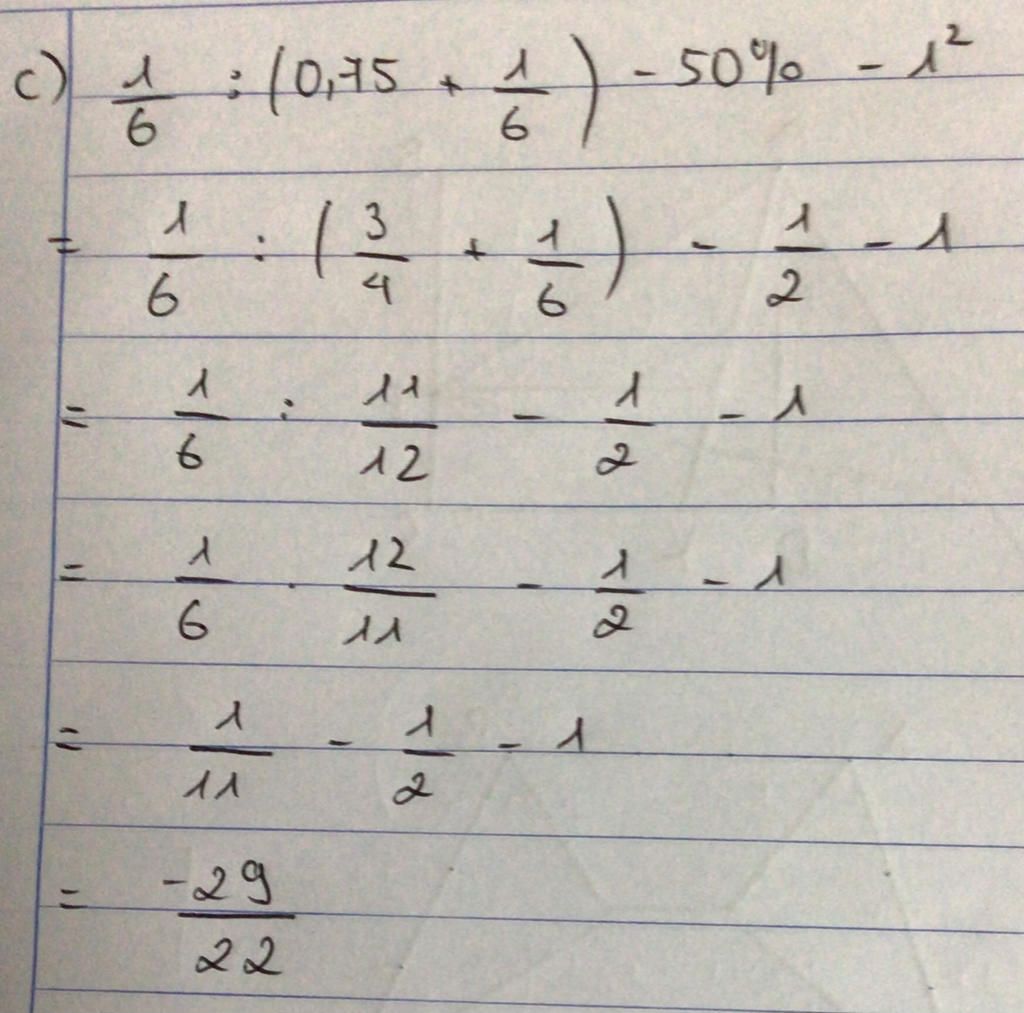 c) 1/6 : (0,75 + 1/6) - 50% - 1²
= 1/6 : (3/4 + 1/6) - 1/2 - 1
= 1/6 : 11/12 - 1/2 - 1
= 1/6 . 12/11 - 1/2 - 1
= 1/11 - 1/2 - 1
= -29/22